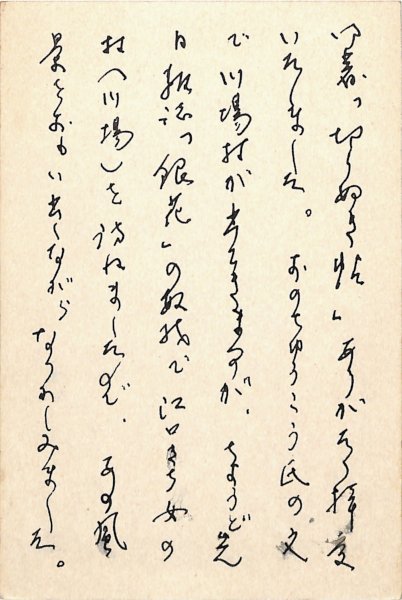 御著「切りぬき帖」ありがたく拝受
いたしました。おのちゅうこう氏の文
で川場村が出てきますのが、ちょうど先
日雑誌「銀花」の取材で江口きち女の
村(川場)を訪ねましたので、その風
景をおもい出しながらなつかしみました。